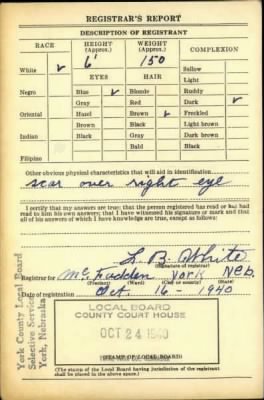 REGISTRAR'S REPORT
DESCRIPTION OF REGISTRANT
RACE HEIGHT (Approx.) WEIGHT (Approx.) COMPLEXION
6' 150
White ✓ EYES HAIR Sallow
Light
Negro Blue ✓ Blonde Ruddy
Gray Red Dark ✓
Oriental Hazel Brown ✓ Freckled
Brown Black Light brown
Indian Black Gray Dark brown
Bald Black
Filipino
Other obvious physical characteristics that will aid in identification
scar over right eye
I certify that my answers are true; that the person registered has read or has had
read to him his own answers; that I have witnessed his signature or mark and that
all of his answers of which I have knowledge are true, except as follows:
L. B. White
(Signature of registrar)
Registrar for McFadden York Neb.
(Precinct) (Ward) (City or county) (State)
Date of registration Oct. 16 - 1940
LOCAL BOARD
COUNTY COURT HOUSE
OCT 24 1940
(STAMP OF LOCAL BOARD)
(The stamp of the Local Board having jurisdiction of the registrant
shall be placed in the above space.)
York County Local Board
Selective Service
York, Nebraska